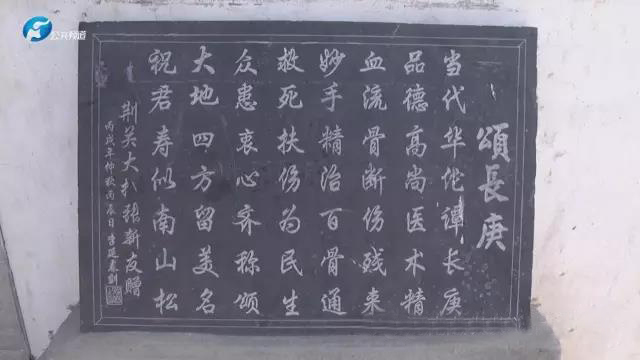 公共频道
頌長庚
当代华佗谭长庚
品德高尚医术精
血流骨断伤残来
妙手精治百骨通
救死扶伤为民生
众患衷心齐称颂
大地四方留美名
祝君寿似南山松
荆关大扒张新友赠
丙戌年仲秋丙辰日李延春刻